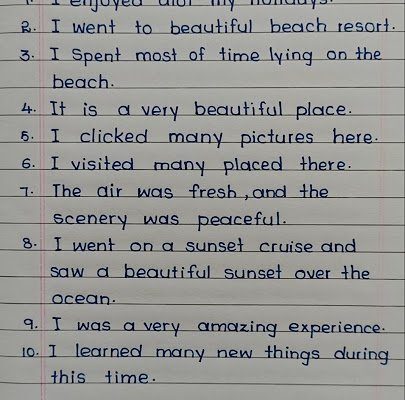 1. I enjoyed alot my holidays.
2. I went to beautiful beach resort.
3. I spent most of time lying on the
beach.
4. It is a very beautiful place.
5. I clicked many pictures here.
6. I visited many placed there.
7. The air was fresh, and the
scenery was peaceful.
8. I went on a sunset cruise and
saw a beautiful sunset over the
ocean.
9. I was a very amazing experience.
10. I learned many new things during
this time.